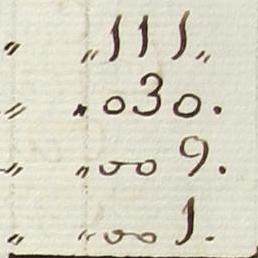 〃 〃111〃
〃 〃030.
〃 〃009.
〃 〃001.